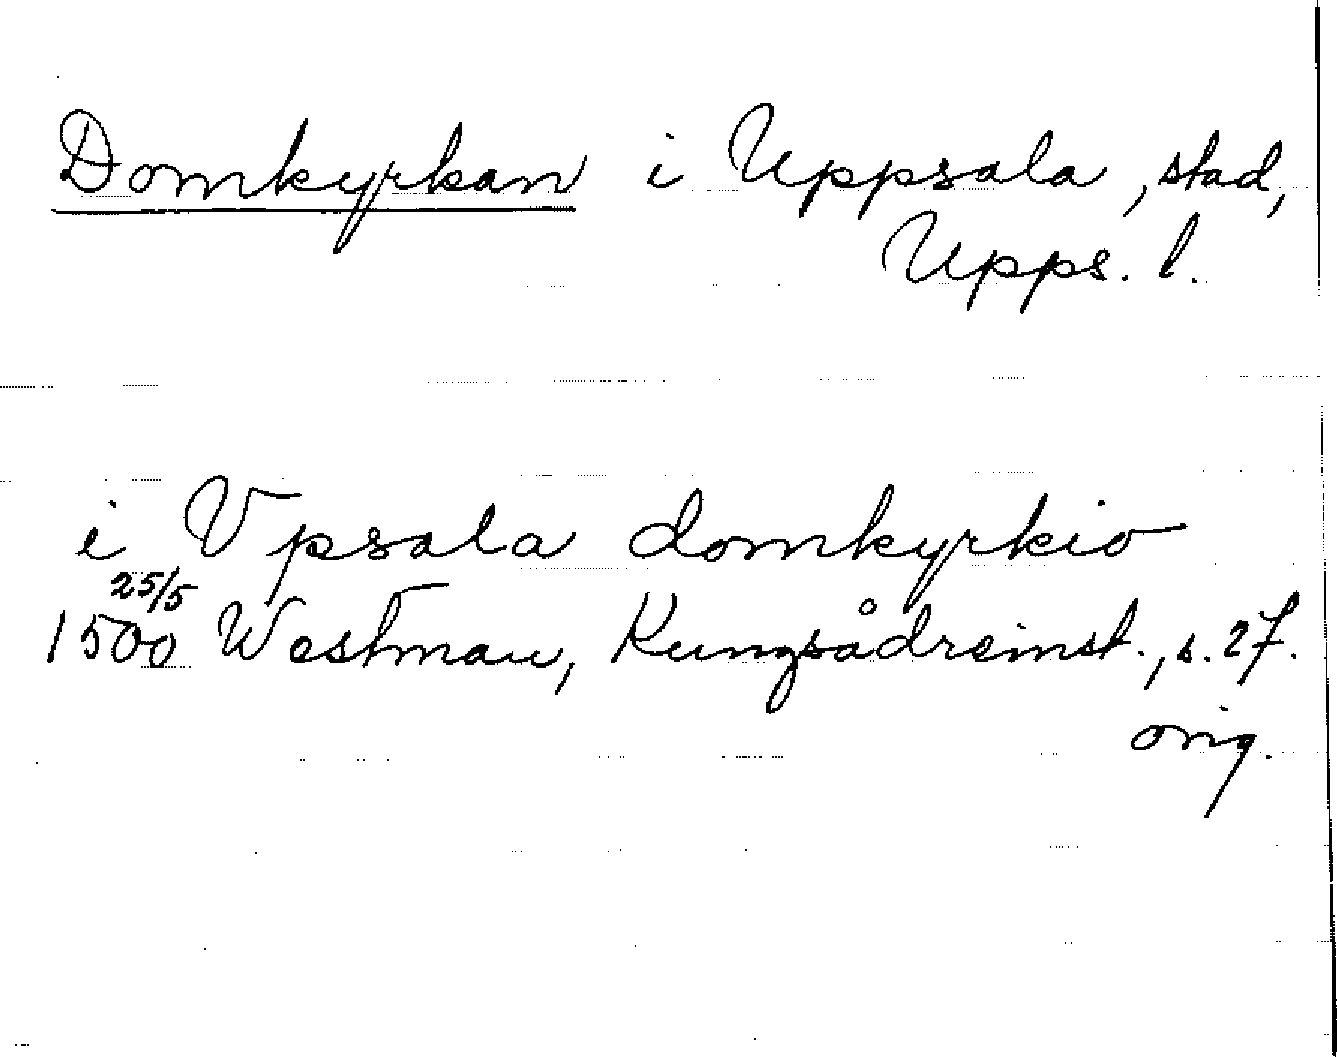 Domkyrkan i Uppsala, stad,
Upps. l.
i Vpsala domkyrkio
25/5
1500 Westman, Kungsådreinst., s. 27.
orig.